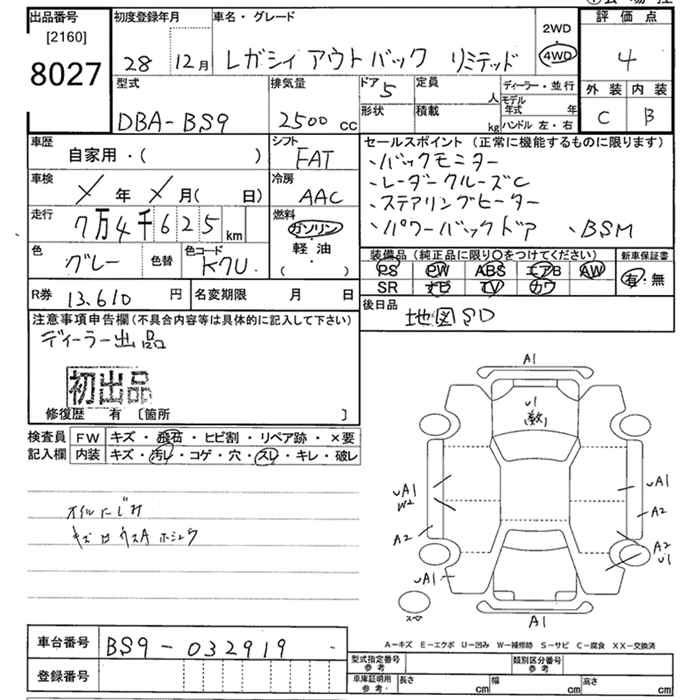 出品番号
[2160]
8027
初度登録年月
28 12月
車名・グレード
レガシィ アウトバック リミテッド
2WD
4WD
評価点
4
外装 内装
C B
型式
DBA-BS9
排気量
2500 cc
ドア 5
形状
定員 人
積載 kg
ディーラー・並行
モデル年式 年
ハンドル 左・右
車歴
自家用・( )
シフト
FAT
車検
年 月( 日)
冷房
AAC
走行
7万4千625km
燃料
ガソリン
軽油
( )
色
グレー
色替
色コード
KKU
R券 13.610 円
名変期限 月 日
セールスポイント (正常に機能するものに限ります)
、バックモニター
、レーダークルーズC
、ステアリングヒーター
、パワーバックドア 、BSM
装備品 (純正品に限り○をつけてください)
PS PW ABS エアB AW
SR ナビ TV カワ
新車保証書
有・無
後日品
地図SD
注意事項申告欄(不具合内容等は具体的に記入して下さい)
ディーラー出品
初出品
修復歴 有 〔箇所 〕
検査員記入欄
FW キズ・飛石・ヒビ割・リペア跡・×要
内装 キズ・汚レ・コゲ・穴・スレ・キレ・破レ
オイルにじみ
A1
U1
(数)
UA1
W2
A2
UA1
UA1
A2
A2
U1
A1
スペア
A-キズ E-エクボ U-凹み W-補修跡 S-サビ C-腐食 XX-交換済
車台番号
BS9-032919
登録番号
型式指定番号
参考
類別区分番号
参考
車庫証明用
参考
長さ cm
幅 cm
高さ cm